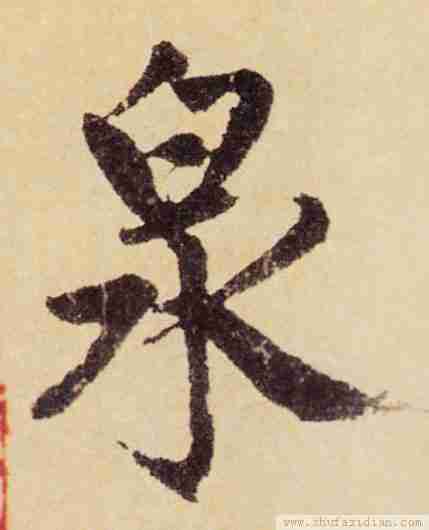 泉
www.shufazidian.com